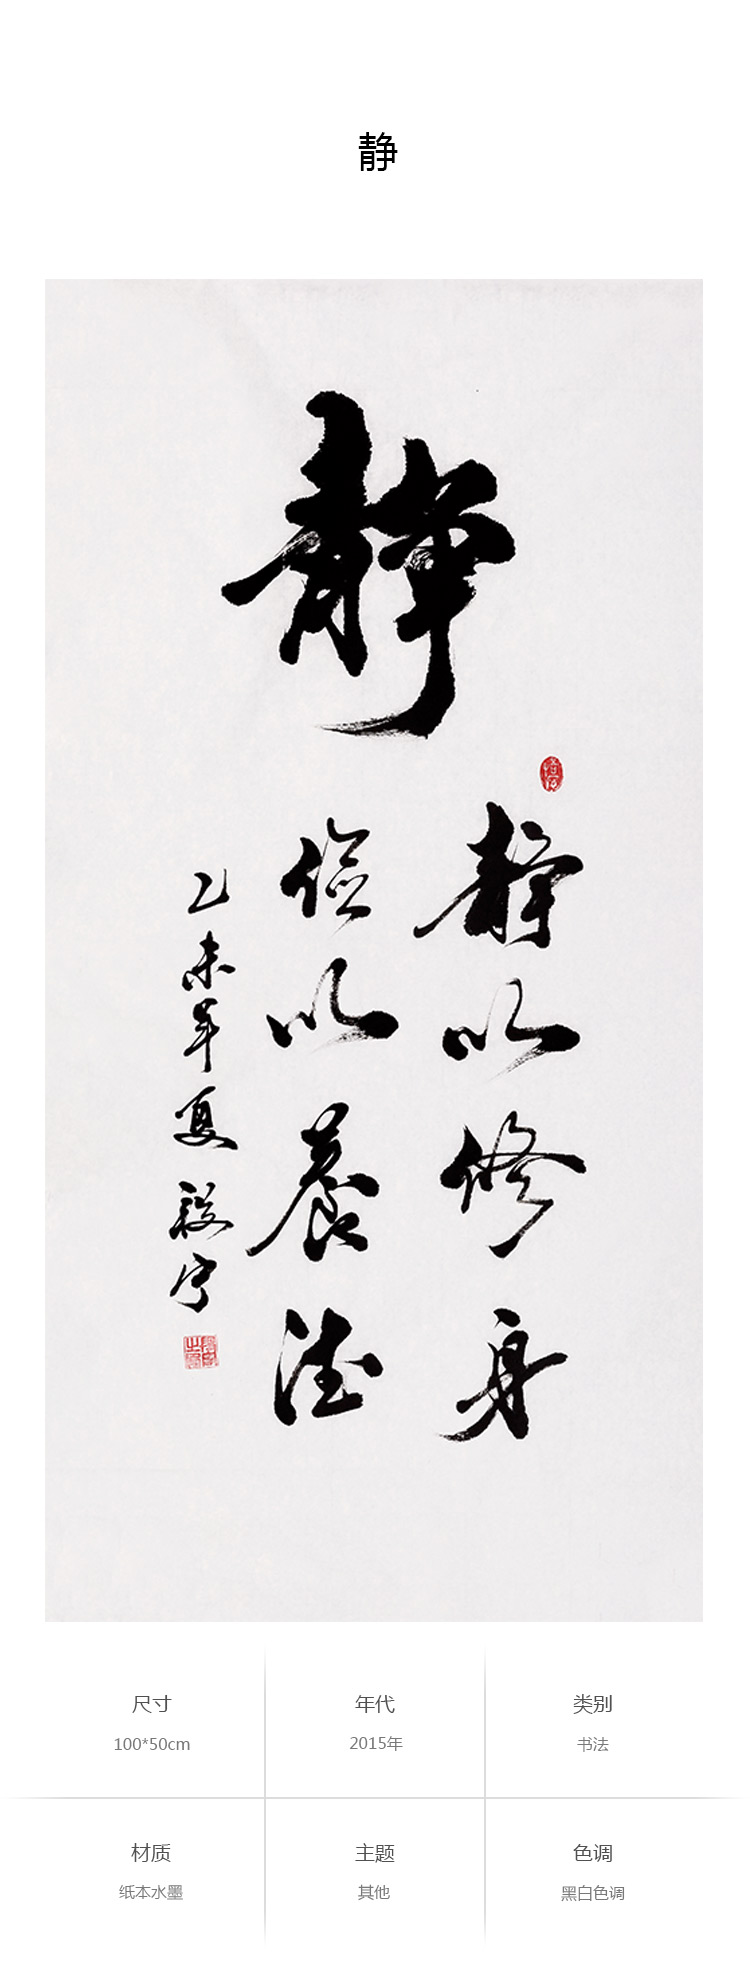 静
静
静以修身
俭以養德
乙未年夏
尺寸
年代
类别
100*50cm
2015年
书法
材质
主题
色调
纸本水墨
其他
黑白色调